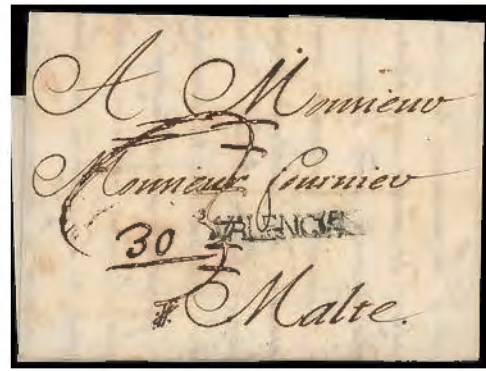 A Monsieur
Monsieur fournier
VALENCIA
30
Malte.